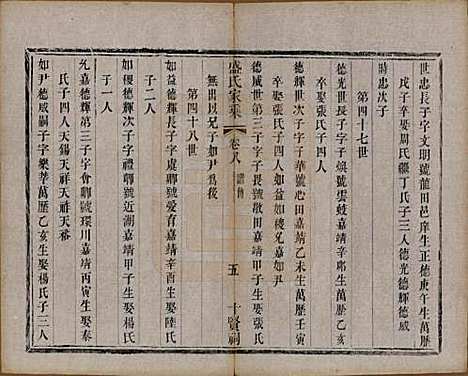 世忠長子字文明號龍田邑庠生正德庚午生萬歷
戊子卒娶周氏繼丁氏子三人德光德輝德威
時忠次子
第四十七世
德光世長子字子娛號雲岐嘉靖辛卯生萬歷乙亥
卒娶張氏子四人如益如稜兄嘉如尹
德輝世次子字子華號心田嘉靖乙未生萬歷壬寅
德威世第三子字子長號敬田嘉靖甲子生娶張氏
無出以兄子如尹為後
盛氏家乘
卷八
五
十賢祠
第四十八世
如益德輝長子字虞卿號愛育嘉靖辛酉生娶陸氏
子二人
如稜德輝次子字禮卿號近湖嘉靖甲子生娶楊氏
子一人
允嘉德輝第三子字會卿號環川嘉靖丙寅生娶秦
氏子四人天錫天祥天祚天裕
如尹德威嗣子字樂莘萬歷乙亥生娶楊氏子二人